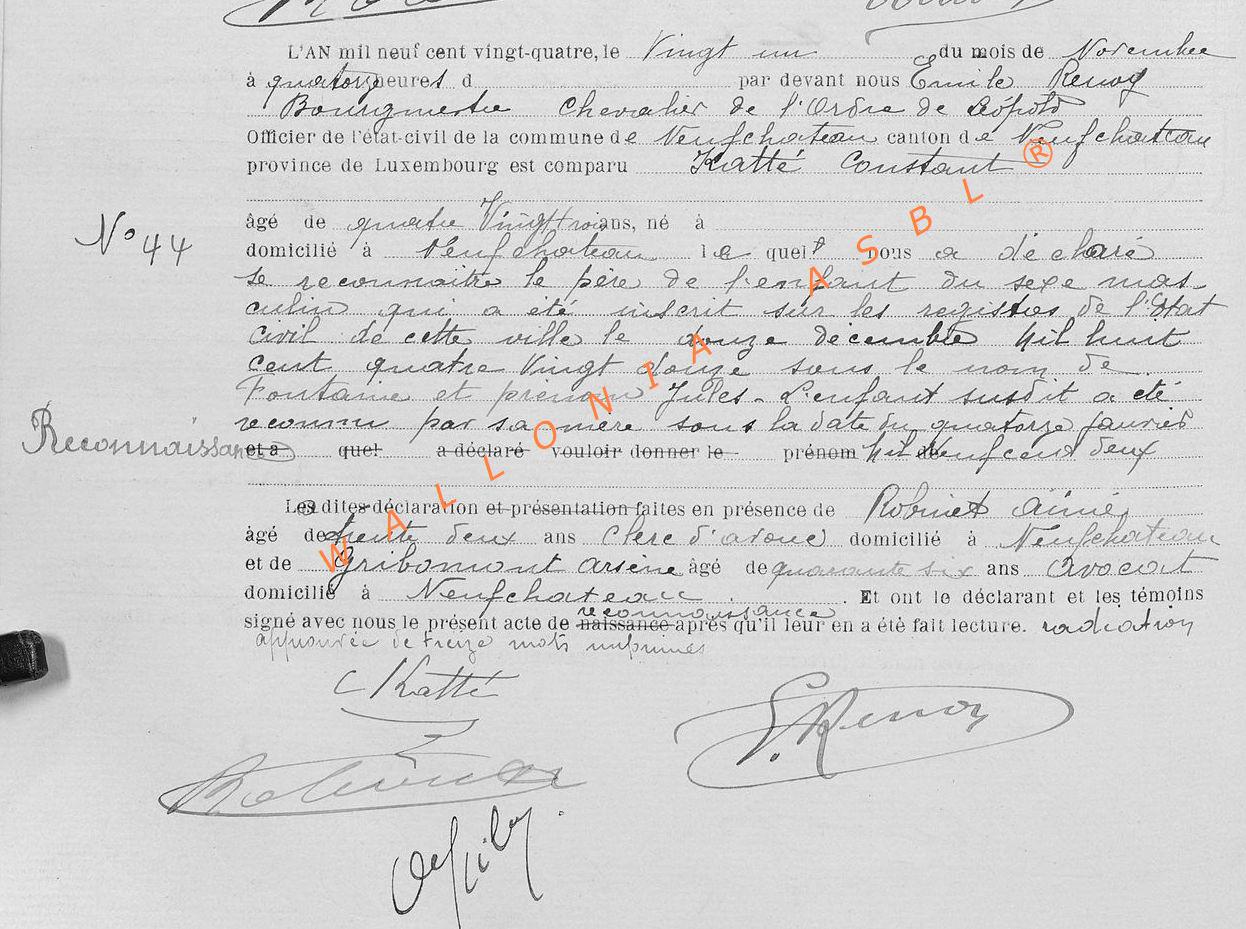 L'AN mil neuf cent vingt-quatre, le Vingt un du mois de Novembre
à quatorze heures d par devant nous Emile Renoy
Bourgmestre Chevalier de l'Ordre de Léopold
Officier de l'état-civil de la commune de Neufchateau canton de Neufchateau
province de Luxembourg est comparu Katté Constant
âgé de quatre Vingt trois ans, né à
N° 44
domicilié à Neufchateau lequel nous a déclaré
se reconnaitre le père de l'enfant du sexe mas-
culin qui a été inscrit sur les registres de l'Etat
Civil de cette ville le douze décembre Mil huit
cent quatre Vingt douze sous le nom de
Fontaine et prénom Jules - L'enfant susdit a été
reconnu par sa mère sous la date du quatorze janvier
Reconnaissance
et a quel a déclaré vouloir donner le prénom Mil Neuf cent deux
Les dites déclaration et présentation faites en présence de Robinet Aimé,
âgé de trente deux ans Clerc d'avoué domicilié à Neufchateau
et de Gribomont Arsène âgé de quarante six ans Avocat
domicilié à Neufchateau. Et ont le déclarant et les témoins
reconnaissance
signé avec nous le présent acte de naissance après qu'il leur en a été fait lecture. radiation
approuvée de treize mots imprimés
C Katté
E. Renoy
WALLONIA ASBL ®